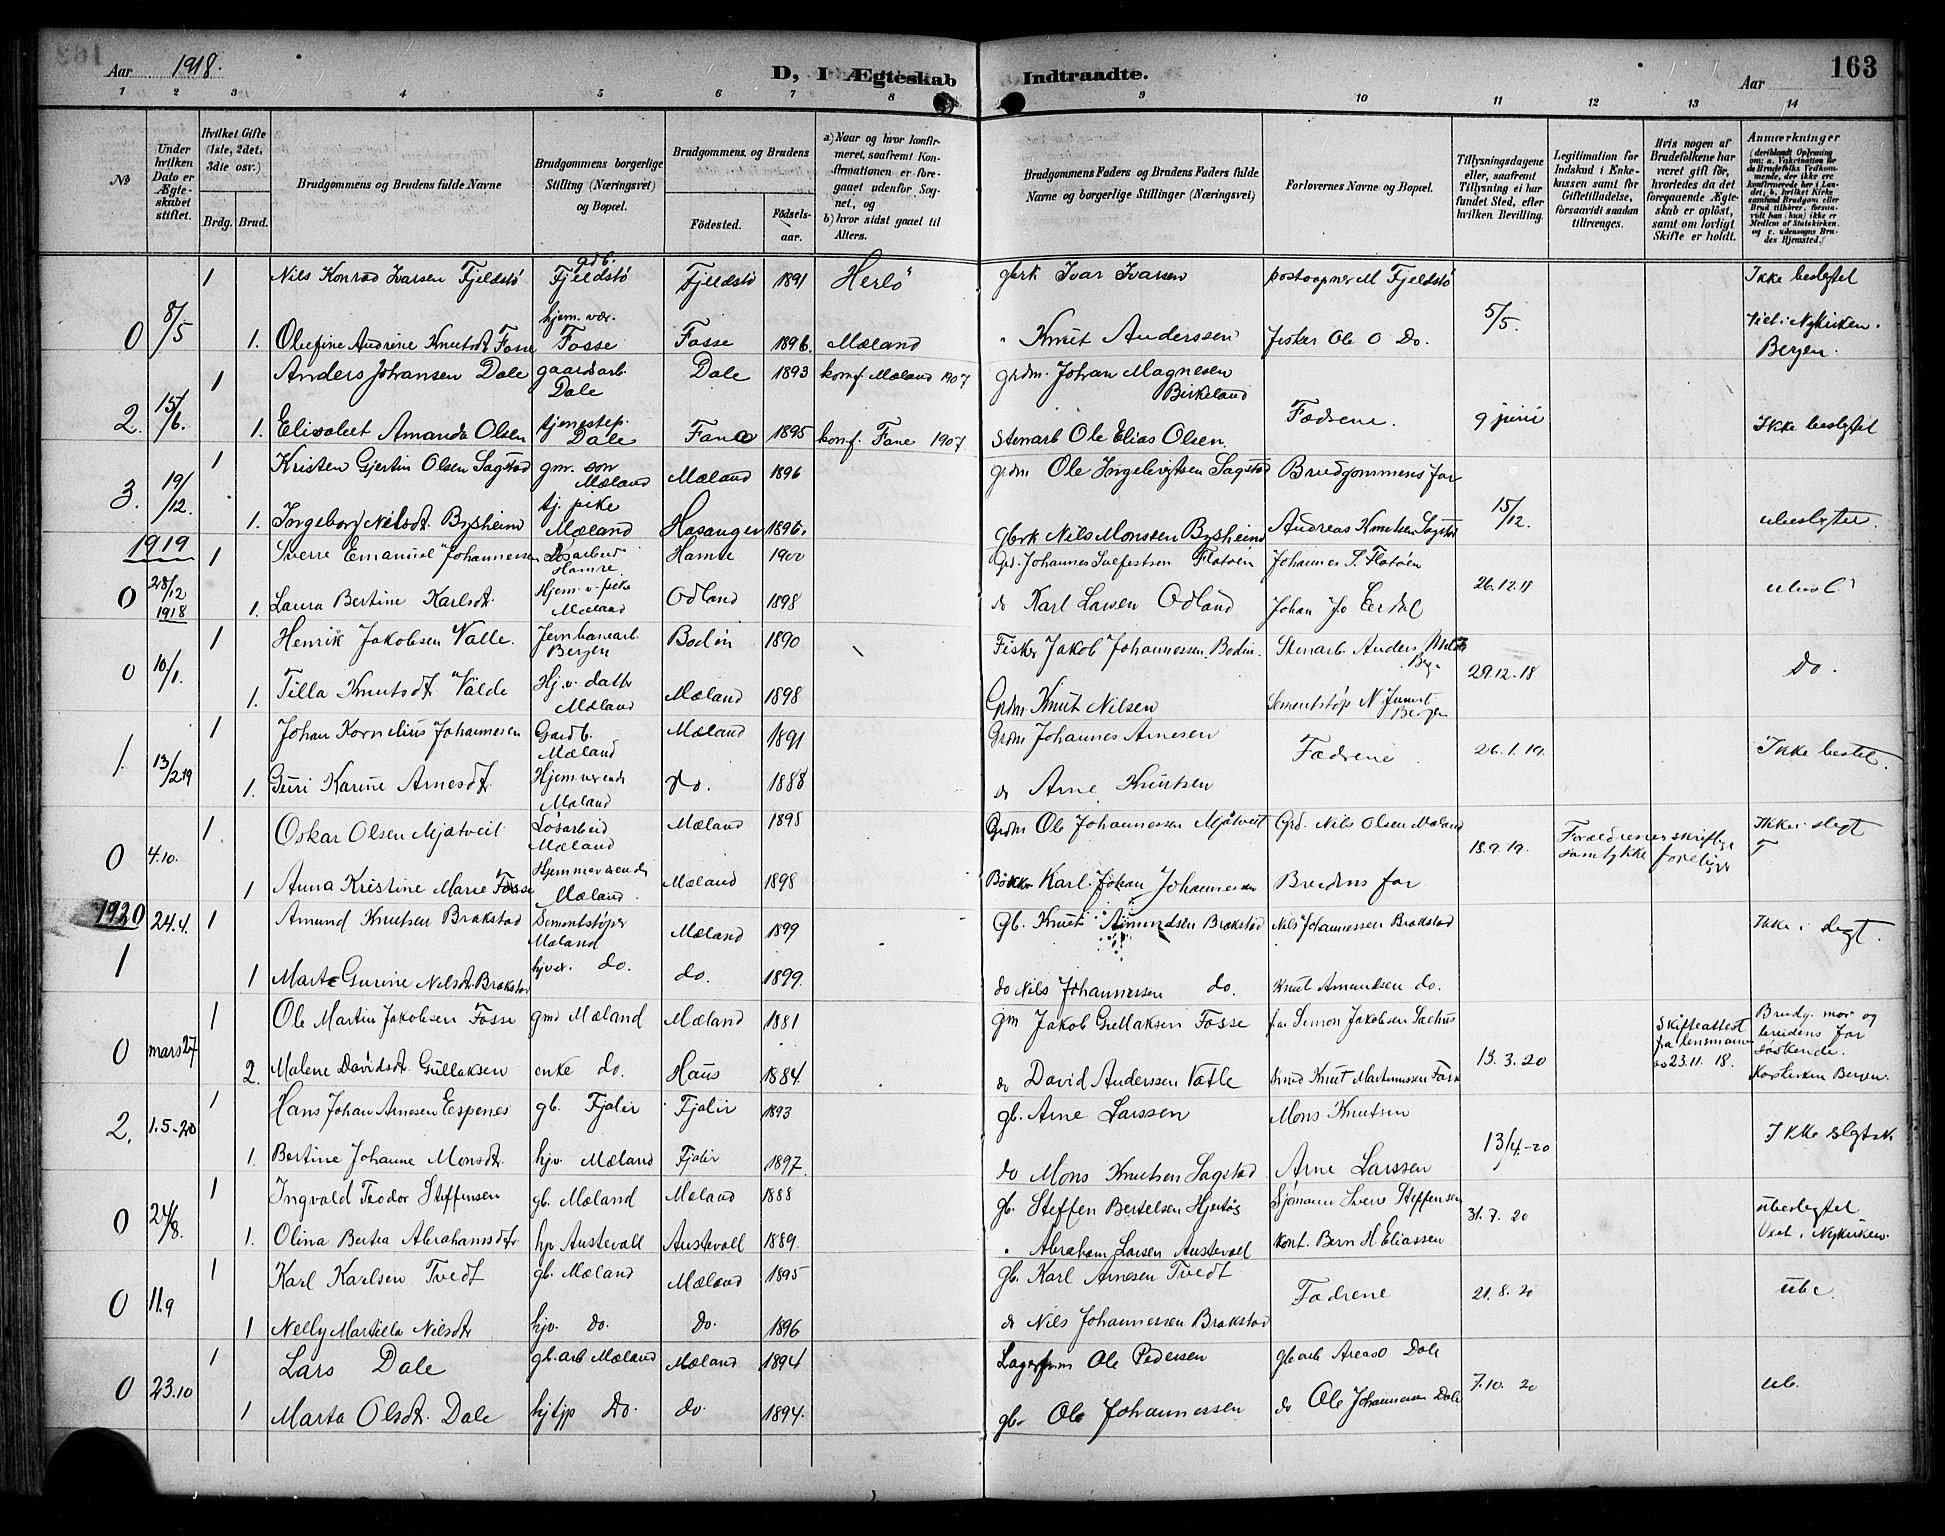 Aar 1918.
D, I Ægteskab Indtraadte.
Aar 163
1 2 3 4 5 6 7 8 9 10 11 12 13 14
No
Under hvilken Dato er Ægteskabet stiftet.
Hvilket Gifte (1ste, 2det, 3die osv.)
Brdg. Brud.
Brudgommens og Brudens fulde Navne
Brudgommens borgerlige Stilling (Næringsvei) og Bopæl.
Brudgommens og Brudens
Fødested. Fødselsaar.
a) Naar og hvor konfirmeret, saafremt Konfirmationen er foregaaet udenfor Sognet, og
b) hvor sidst gaaet til Alters.
Brudgommens Faders og Brudens Faders fulde Navne og borgerlige Stillinger (Næringsvei)
Forlovernes Navne og Bopæl.
Tillysningsdagene eller, saafremt Tillysning ei har fundet Sted, efter hvilken Bevilling.
Legitimation for Indskud i Enkekassen samt for Giftetilladelse, forsaavidt saadan tiltrænges.
Hvis nogen af Brudefolkene har været gift før, hvorledes da det foregaaende Ægteskab er opløst, samt om lovligt Skifte er holdt.
Anmærkninger (deriblandt Oplysning om: a. Vakcination for de Brudefolks Vedkommende, der ikke ere konfirmerede her i Landet, b. hvilket Kirkesamfund Brudgom eller Brud tilhører, forsaavidt han (hun) ikke er Medlem af Statskirken, og c. udensogns Brudes Hjemsted.)
1 Nils Konrad Ivarsen Fjeldstø gdb. Fjeldstø Fjeldstø 1891 Herlø gbrk Ivar Ivarsen postaapner M Fjeldstø Ikke beslegtet
0 8/5 5/5. Viet i Nykirken. Bergen.
1. Olufine Andrine Knutsdt Fosse hjem. vær. Fosse Fosse 1896. Mæland " Knut Anderssen fisker Ole O Do.
1 Anders Johansen Dale gaardsarb. Dale Dale 1893 konf. Mæland 1907 grdm. Johan Magnesen Birkeland
2. 15/6. Fædrene. 9 juni Ikke beslegtet
1. Elisabet Amanda Olsen tjenestep. Dale Fane 1895 konf. Fane 1907 Stenarb Ole Elias Olsen.
1 Kristen Gjertin Olsen Sagstad gm. søn Mæland Mæland 1896 grdm Ole Ingebrigtsen Sagstad Brudgommens far
3. 19/12. 15/12. ubeslegtet.
1. Ingeborg Nilsdt. Bysheim tj. pike Mæland Hosanger 1896. gbrk Nils Monssen Bysheim Andreas Knutsen Sagstad
1919 1 Sverre Emanuel Johannessen Løsarbeid Hamre Hamre 1900 Grd. Johannes Flatøen Johannes S. Flatøen
0 28/12 1918 26.12.18
1. Laura Bertine Karlsdt. Hjem. v. pike Mæland Odland 1898 do Karl Larsen Odland Johan Jo Eerdal
1 Henrik Jakobsen Valle. Jernbanearb. Bergen Bodin 1890 Fisker Jakob Johannessen. Bodin. Stenarb. Anders
0 10/1. 29.12.18 Do.
1. Tilla Knutsdt. Valde Hj. v. datter Mæland Mæland 1898 Grdm Knut Nilsen Sementstøp N Bergen
1 Johan Kornelius Johannesen Gardb. Mæland Mæland 1891 Grdm Johannes Arnesen
1. 13/2 19 Fædrene. 26.1.19. Ikke beslet.
1. Guri Karine Arnesdt. Hjemværende Mæland Do. 1888 do Arne Knutsen
1 Oskar Olsen Mjatveit Løsarbeid Mæland Mæland 1898 Grdm Ole Johannessen Mjåtveit Grd. Nils Olsen Mæland Ikke i slegt
0 4.10. 18.9.19. Forældrenes skriftlige samtykke foreligger
1 Anna Kristine Marie Fosse Hjemmeværende Mæland. Mæland 1898 Bøkker Karl Johan Johannessen Brudens far
1920 24.4. 1 Amund Knutsen Brakstad Sementstøper Mæland Mæland 1899 Gb. Knut Amundsen Brakstad Nils Johannessen Brakstad Ikke i slegt.
1
1 Marta Gurine Nilsdt. Brakstad hjvær. do. do. 1899. do Nils Johannessen do. Knut Amundsen do.
1 Ole Martin Jakobsen Fosse gmd Mæland Mæland 1881 gm Jakob Gullaksen Fosse Simon Jakobsen
0 mars 27 13.3.20 Skifteattest fra lensmann 23.11.18. Brudg. mor og brudens far søskende. Korskirken Bergen.
2. Malene Davidsdt. Gullaksen enke do. Haus 1884. do David Anderssen Vatle Smed Knut Martinussen Fosse
1 Hans Johan Arnesen Espenes gb. Fjalir Fjalir 1893 gb. Arne Larssen Mons Knutsen
2. 1.5-20 13/4-20 Ikke slegtsk
1. Bertine Johanne Monsdt. hjv. Mæland Fjalir 1897. do Mons Knutsen Sagstad Arne Larssen
1 Ingvald Teodor Steffensen gb. Mæland Mæland 1888 gb. Steffen Bertelsen Hjertøs Sjømann Sverre Steffensen ubeslegtet
0 24/8. 31.7.20 Viet i Nykirken.
1. Olina Bertea Abrahamsdtr hjv Austevoll Austevoll 1889. " Abraham Larsen Austevoll kont. Bern H. Eliassen
1 Karl Karlsen Tvedt gb. Mæland Mæland 1895 gb. Karl Arnesen Tvedt
0 11.9 Fædrene 21.8.20 ube.
1 Nelly Martilla Nilsdtr hjv. do. do. 1896 do Nils Johannessen Brakstad
1 Lars Dale gb. arb Mæland Mæland 1894 Lagerfrm Ole Pedersen gb arb Dale
0 23.10 7.10.20 ub.
1 Marta Olsdt. Dale hj do. do. 1894. gb. Ole Johannessen do Ole Johannessen Dale